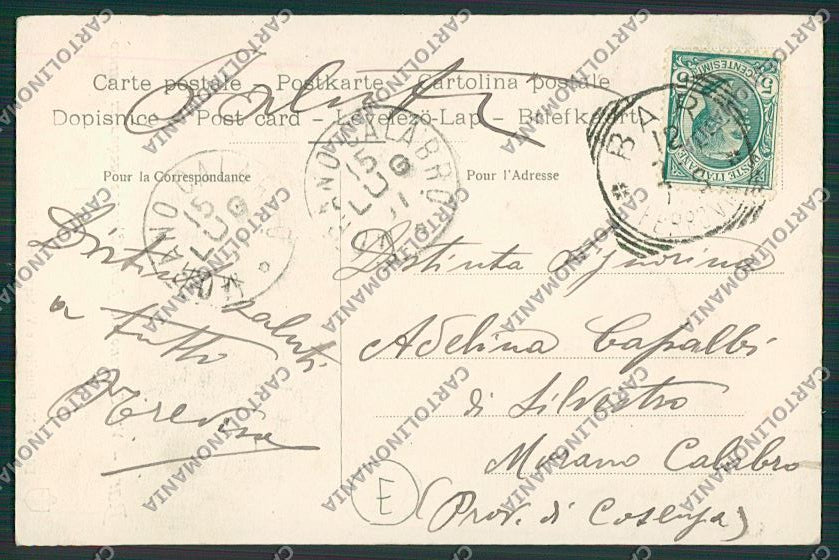 Carte postale - Postkarte - Cartolina postale
Dopisnice - Post card - Levelező-Lap - Briefkaart
Saluti
Pour la Correspondance
Pour l'Adresse
Distinti saluti
a tutti
Distinta Signorina
Adelina Capalbi
di Silvestro
Morano Calabro
(Prov. di Cosenza)
E
MORANO CALABRO
15
LUG
MORANO CALABRO
15
LUG
11
BARI
FERROVIA
POSTE ITALIANE
CENTESIMI
5
CARTOLINOMANIA